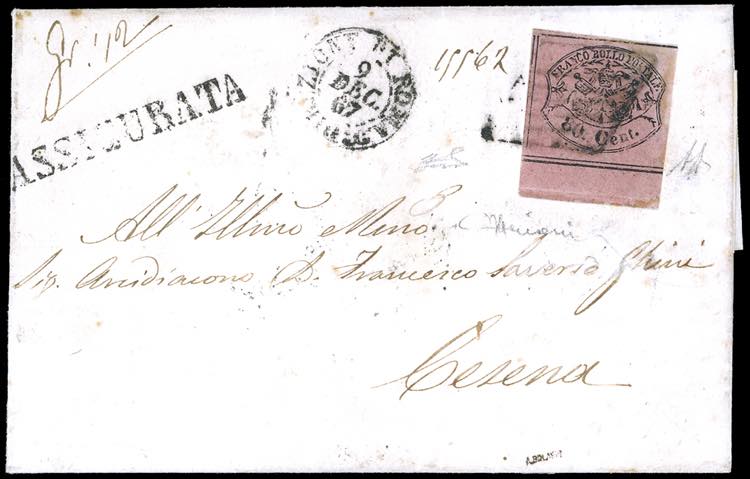 Gr. 12
ASSICURATA
DIREZIONE DI ROMA
9
DEC.
67
15562
FRANCO BOLLO POSTALE
80. Cent.
All' Illmo Revmo
Sig. Arcidiacono D. Francesco Saverio Ghini
Cesena
A.BOLAFFI